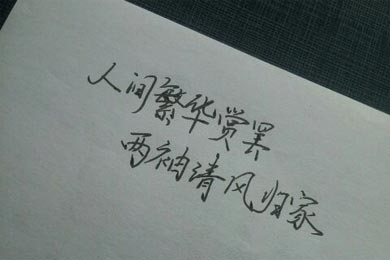 人间繁华赏罢
两袖清风归家